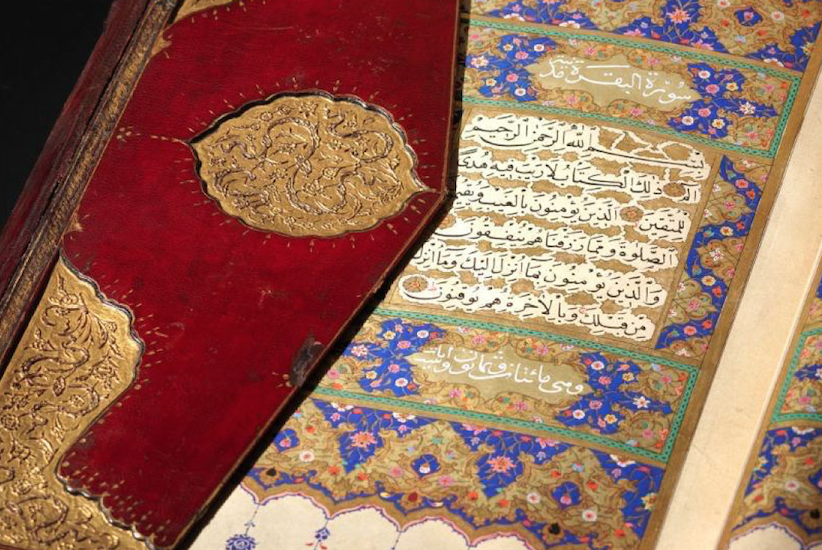 سُورَةُ الْبَقَرَةِ
بِسْمِ اللّٰهِ الرَّحْمٰنِ الرَّحِيمِ
الٓمٓ ذٰلِكَ الْكِتَابُ لَا رَيْبَ فِيهِ هُدًى
لِلْمُتَّقِينَ الَّذِينَ يُؤْمِنُونَ بِالْغَيْبِ
الصَّلٰوةَ وَمِمَّا رَزَقْنَاهُمْ يُنْفِقُونَ
وَالَّذِينَ يُؤْمِنُونَ بِمَا اُنْزِلَ اِلَيْكَ وَمَا اُنْزِلَ
مِنْ قَبْلِكَ وَبِالْاٰخِرَةِ هُمْ يُوقِنُونَ
وهى مائتان وثمانون